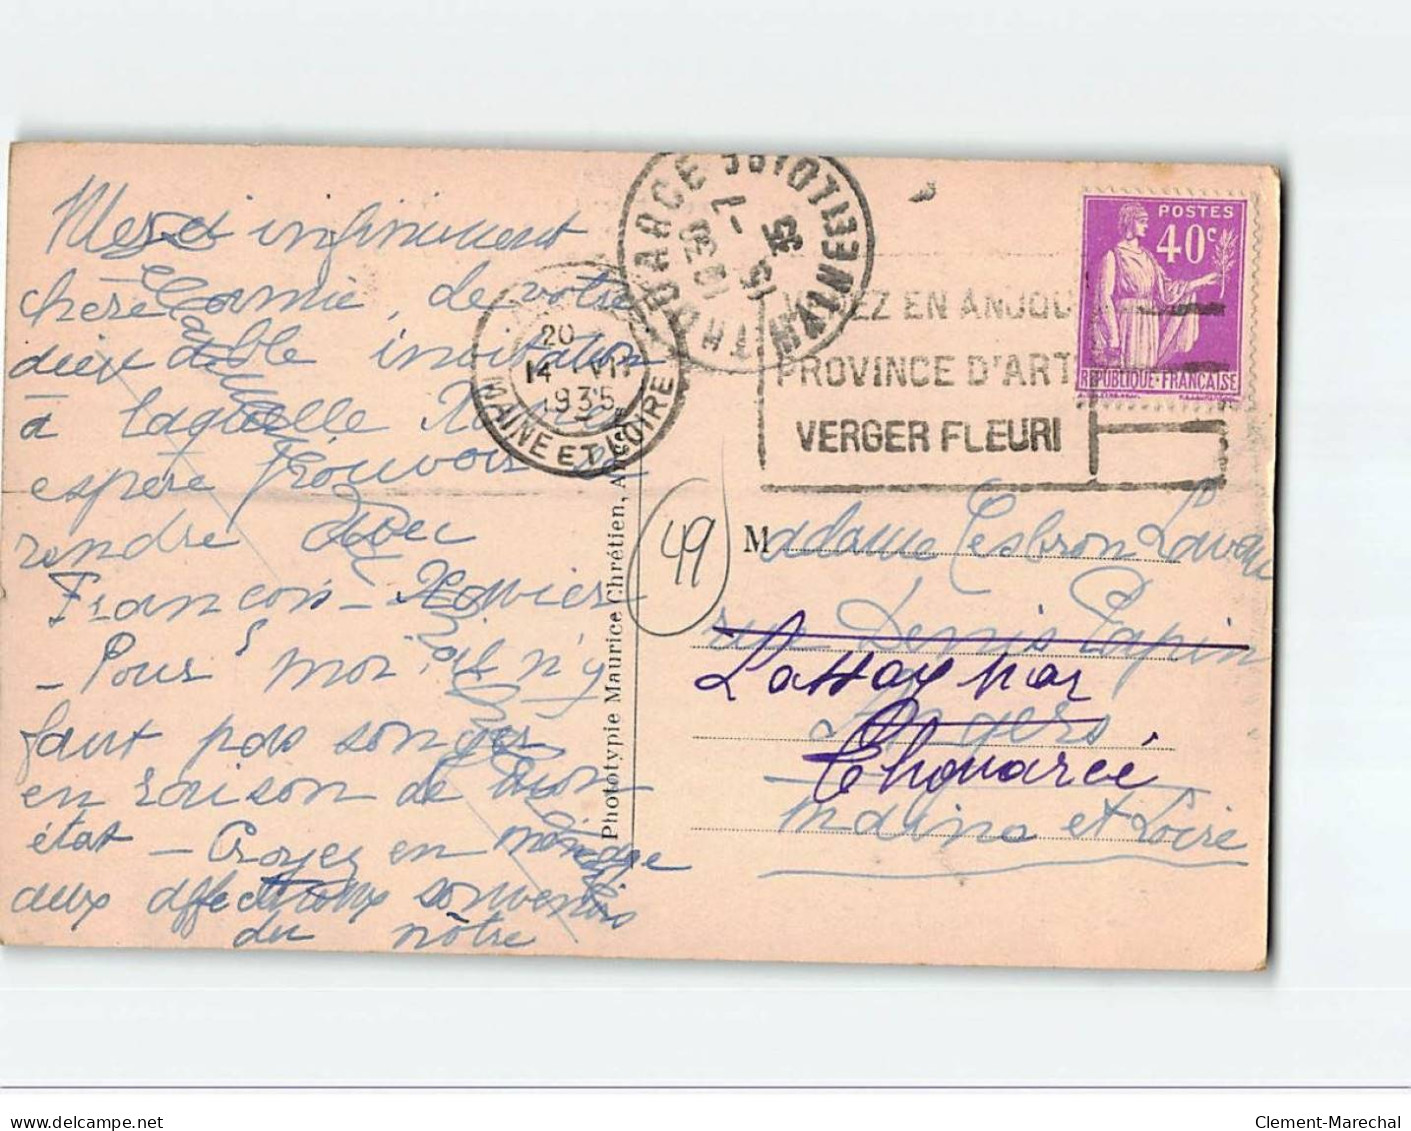 Merci infiniment
chère Comie, de votre
dieu dable invitation
à laquelle
espère trouvoir se
rendre avec
François-Xavier
- Pour moi, il n'y
faut pas songer
en raison de mon
état - Croyez en
aux affectueux souvenirs
du nôtre
Phototypie Maurice Chrétien, Angers
20
14 VII
1935
MAINE ET LOIRE
THOUARCE
MAINE ET LOIRE
10 30
15 -7
35
VISITEZ EN ANJOU
PROVINCE D'ART
VERGER FLEURI
POSTES
40c
REPUBLIQUE FRANÇAISE
49
Madame Lesbron Lavau
rue Denis Papin
Lattay par
Angers
Thouarcé
Maine et Loire
delcampe.net
Clement-Marechal